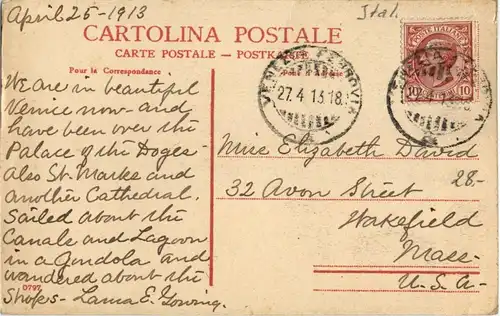 April 25-1913
Ital
CARTOLINA POSTALE
CARTE POSTALE — POSTKARTE
Pour la Correspondance
POSTE ITALIANE
10
10
VENEZIA FERROVIA
27.4.13.18
We are in beautiful
Venice now- and
have been over the
Palace of the Doges-
Also St. Marks and
another Cathedral.
Sailed about the
Canals and Lagoon
in a Gondola and
wandered about the
Shops- Laura E. Gowing.
Miss Elizabeth David
32 Avon Street
28-
Wakefield
Mass-
U.S.A-
0797